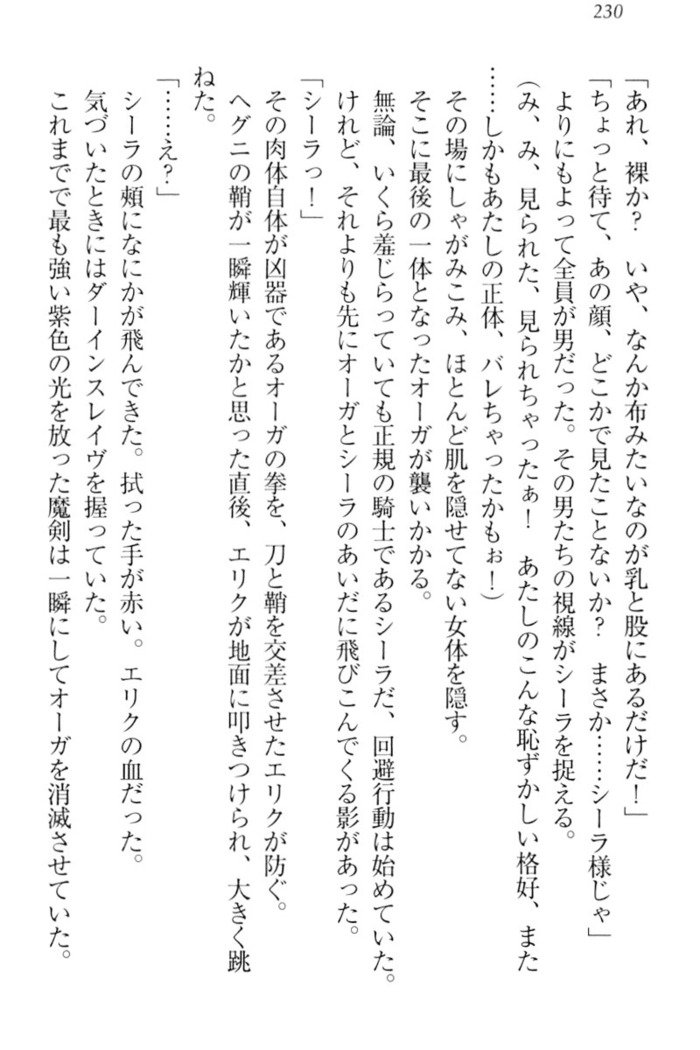 230
「あれ、裸か？　いや、なんか布みたいなのが乳と股にあるだけだ！」
「ちょっと待て、あの顔、どこかで見たことないか？　まさか……シーラ様じゃ」
よりにもよって全員が男だった。その男たちの視線がシーラを捉える。
（み、み、見られた、見られちゃったぁ！　あたしのこんな恥ずかしい格好、また
……しかもあたしの正体、バレちゃったかもぉ！）
その場にしゃがみこみ、ほとんど肌を隠せてない女体を隠す。
そこに最後の一体となったオーガが襲いかかる。
無論、いくら羞じらっていても正規の騎士であるシーラだ、回避行動は始めていた。
けれど、それよりも先にオーガとシーラのあいだに飛びこんでくる影があった。
「シーラっ！」
その肉体自体が凶器であるオーガの拳を、刀と鞘を交差させたエリクが防ぐ。
ヘグニの鞘が一瞬輝いたかと思った直後、エリクが地面に叩きつけられ、大きく跳
ねた。
「……え？」
シーラの頰になにかが飛んできた。拭った手が赤い。エリクの血だった。
気づいたときにはダーインスレイヴを握っていた。
これまでで最も強い紫色の光を放った魔剣は一瞬にしてオーガを消滅させていた。